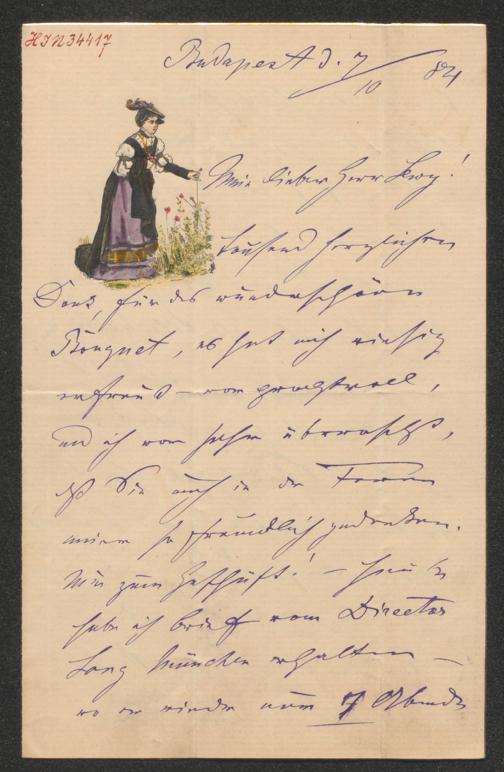 HIN34417
Budapest d. 7/10 84
Mein lieber Herr Levy!
Tausend herzlichen
Dank, für das wunderschöne
Bouquet, es hat mich riesig
erfreut – war prachtvoll,
und ich war sehr überrascht,
daß Sie auch in der Ferne
meiner so freundlich gedenken.
Nun zum Geschäft! –
habe ich Brief vom Director
Lang München erhalten –
wo er wieder nur 7 Abende